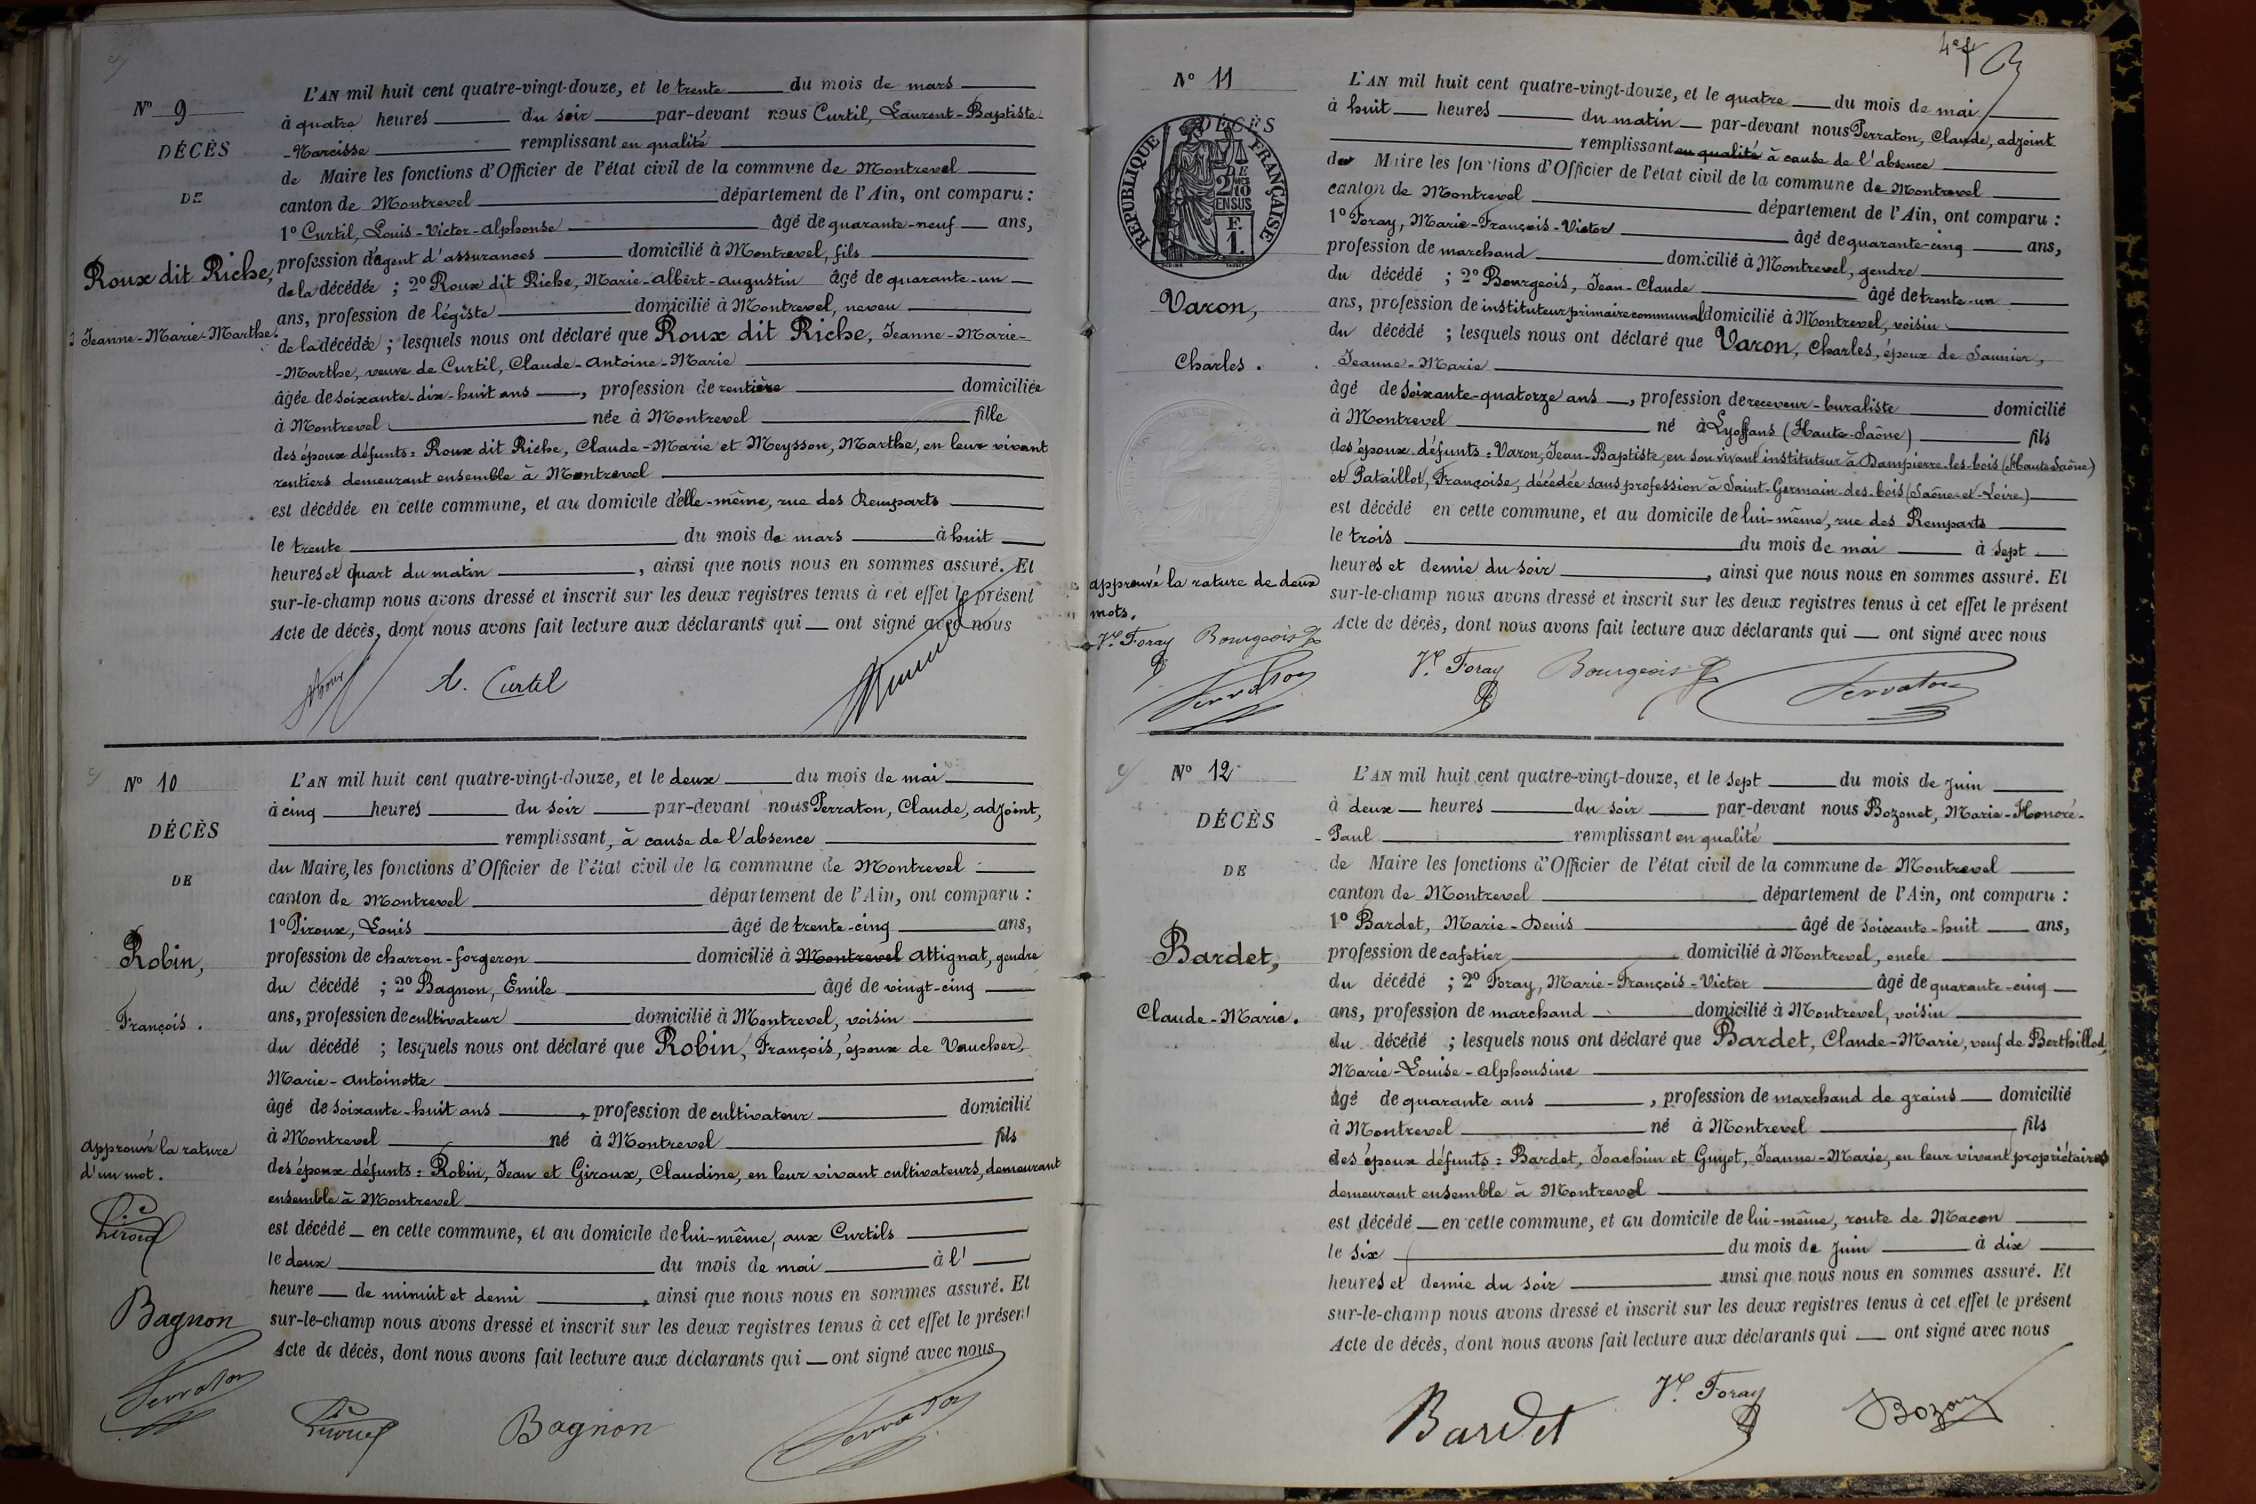 N° 9
DÉCÈS
DE
Roux dit Riche,
Jeanne-Marie-Marthe.
L'AN mil huit cent quatre-vingt-douze, et le trente du mois de mars
à quatre heures du soir par-devant nous Curtil, Laurent-Baptiste-
-Narcisse remplissant en qualité
de Maire les fonctions d'Officier de l'état civil de la commune de Montrevel
canton de Montrevel département de l'Ain, ont comparu :
1° Curtil, Louis-Victor-Alphonse âgé de quarante-neuf ans,
profession d'agent d'assurances domicilié à Montrevel, fils
de la décédée ; 2° Roux dit Riche, Marie-Albert-Augustin âgé de quarante-un
ans, profession de légiste domicilié à Montrevel, neveu
de la décédée ; lesquels nous ont déclaré que Roux dit Riche, Jeanne-Marie-
-Marthe, veuve de Curtil, Claude-Antoine-Marie
âgée de soixante-dix-huit ans, profession de rentière domiciliée
à Montrevel née à Montrevel fille
des époux défunts : Roux dit Riche, Claude-Marie et Meysson, Marthe, en leur vivant
rentiers demeurant ensemble à Montrevel
est décédée en cette commune, et au domicile d'elle-même, rue des Remparts
le trente du mois de mars à huit
heures et quart du matin, ainsi que nous nous en sommes assuré. Et
sur-le-champ nous avons dressé et inscrit sur les deux registres tenus à cet effet le présent
Acte de décès, dont nous avons fait lecture aux déclarants qui ont signé avec nous
Curtil
N° 10
DÉCÈS
DE
Robin,
François.
approuvé la rature
d'un mot.
Bagnon
L'AN mil huit cent quatre-vingt-douze, et le deux du mois de mai
à cinq heures du soir par-devant nous Perraton, Claude, adjoint,
remplissant, à cause de l'absence
du Maire, les fonctions d'Officier de l'état civil de la commune de Montrevel
canton de Montrevel département de l'Ain, ont comparu :
1° Piroux, Louis âgé de trente-cinq ans,
profession de charron-forgeron domicilié à Montrevel Attignat, gendre
du décédé ; 2° Bagnon, Emile âgé de vingt-cinq
ans, profession de cultivateur domicilié à Montrevel, voisin
du décédé ; lesquels nous ont déclaré que Robin, François, époux de Vaucher,
Marie-Antoinette
âgé de soixante-huit ans, profession de cultivateur domicilié
à Montrevel né à Montrevel fils
des époux défunts : Robin, Jean et Giroux, Claudine, en leur vivant cultivateurs, demeurant
ensemble à Montrevel
est décédé en cette commune, et au domicile de lui-même, aux Curtils
le deux du mois de mai à l'
heure de minuit et demi, ainsi que nous nous en sommes assuré. Et
sur-le-champ nous avons dressé et inscrit sur les deux registres tenus à cet effet le présent
Acte de décès, dont nous avons fait lecture aux déclarants qui ont signé avec nous
Bagnon
Perraton
4e f
N° 11
DÉCÈS
DE
RÉPUBLIQUE FRANÇAISE
2/10 EN SUS
1 F.
Varon,
Charles.
approuvé la rature de deux
mots.
Vr Foray Bourgeois
Perraton
L'AN mil huit cent quatre-vingt-douze, et le quatre du mois de mai
à huit heures du matin par-devant nous Perraton, Claude, adjoint
remplissant en qualité à cause de l'absence
du Maire les fonctions d'Officier de l'état civil de la commune de Montrevel
canton de Montrevel département de l'Ain, ont comparu :
1° Foray, Marie-François-Victor âgé de quarante-cinq ans,
profession de marchand domicilié à Montrevel, gendre
du décédé ; 2° Bourgeois, Jean-Claude âgé de trente-un
ans, profession de instituteur primaire communal domicilié à Montrevel, voisin
du décédé ; lesquels nous ont déclaré que Varon, Charles, époux de Saunier,
Jeanne-Marie
âgé de soixante-quatorze ans, profession de receveur-buraliste domicilié
à Montrevel né à Lyoffans (Haute-Saône) fils
des époux défunts : Varon, Jean-Baptiste, en son vivant instituteur à Dampierre-les-bois (Haute Saône)
et Pataillot, Françoise, décédée sans profession à Saint-Germain-des-bois (Saône-et-Loire)
est décédé en cette commune, et au domicile de lui-même, rue des Remparts
le trois du mois de mai à sept
heures et demie du soir, ainsi que nous nous en sommes assuré. Et
sur-le-champ nous avons dressé et inscrit sur les deux registres tenus à cet effet le présent
Acte de décès, dont nous avons fait lecture aux déclarants qui ont signé avec nous
Vr Foray Bourgeois Perraton
N° 12
DÉCÈS
DE
Bardet,
Claude-Marie.
L'AN mil huit cent quatre-vingt-douze, et le sept du mois de juin
à deux heures du soir par-devant nous Bozonet, Marie-Honoré-
-Paul remplissant en qualité
de Maire les fonctions d'Officier de l'état civil de la commune de Montrevel
canton de Montrevel département de l'Ain, ont comparu :
1° Bardet, Marie-Denis âgé de soixante-huit ans,
profession de cafetier domicilié à Montrevel, oncle
du décédé ; 2° Foray, Marie-François-Victor âgé de quarante-cinq
ans, profession de marchand domicilié à Montrevel, voisin
du décédé ; lesquels nous ont déclaré que Bardet, Claude-Marie, veuf de Berthillod,
Marie-Louise-Alphonsine
âgé de quarante ans, profession de marchand de grains domicilié
à Montrevel né à Montrevel fils
des époux défunts : Bardet, Joachim et Guyot, Jeanne-Marie, en leur vivant propriétaires
demeurant ensemble à Montrevel
est décédé en cette commune, et au domicile de lui-même, route de Macon
le six du mois de juin à dix
heures et demie du soir ainsi que nous nous en sommes assuré. Et
sur-le-champ nous avons dressé et inscrit sur les deux registres tenus à cet effet le présent
Acte de décès, dont nous avons fait lecture aux déclarants qui ont signé avec nous
Bardet Vr Foray Bozonet